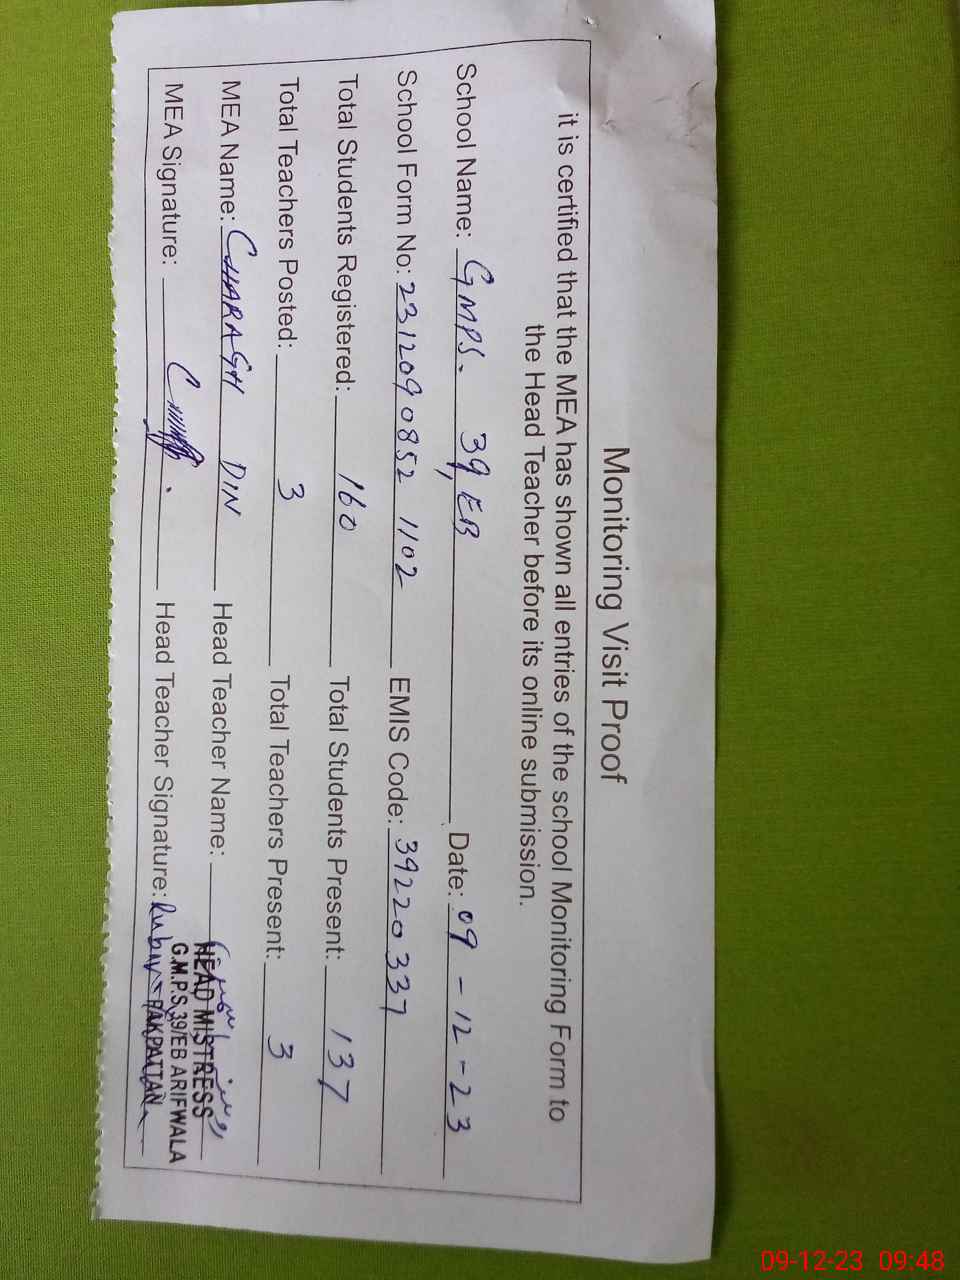 Monitoring Visit Proof
it is certified that the MEA has shown all entries of the school Monitoring Form to
the Head Teacher before its online submission.
School Name: GMPS. 39/EB Date: 09-12-23
School Form No: 2312090852 1102 EMIS Code: 39220337
Total Students Registered: 160 Total Students Present: 137
Total Teachers Posted: 3 Total Teachers Present: 3
MEA Name: CHARAGH DIN Head Teacher Name:
HEAD MISTRESS
G.M.P.S 39/EB ARIFWALA
MEA Signature: Head Teacher Signature:
PAKPATTAN
09-12-23 09:48